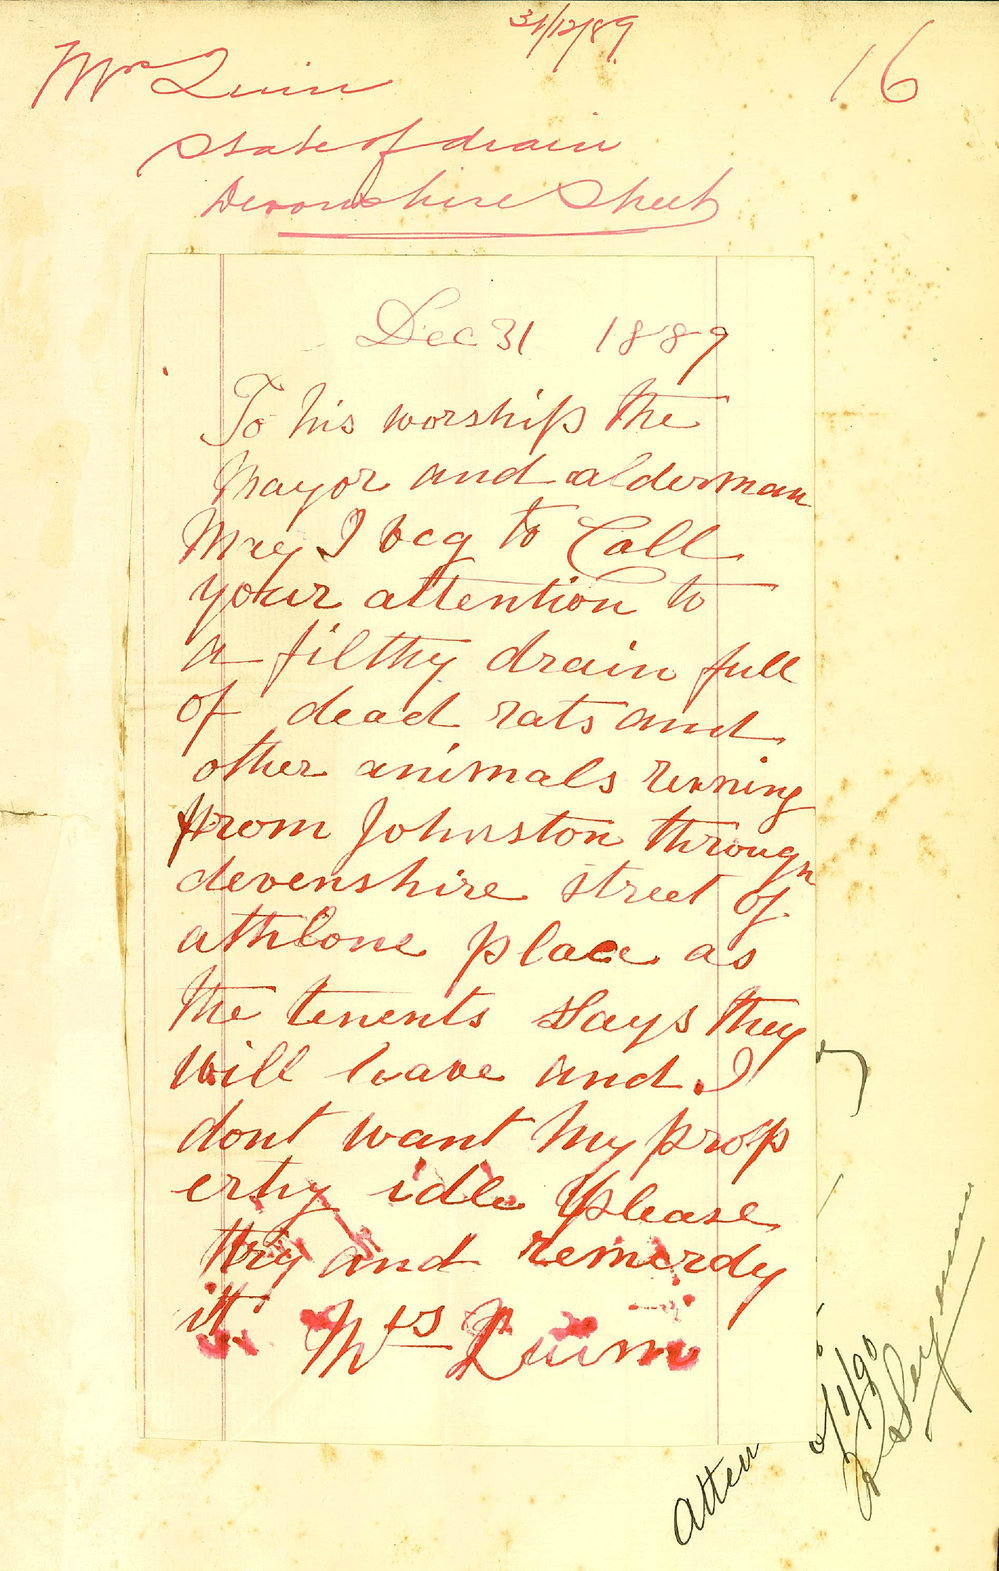 31/12/89
16
Mrs Quin
State of drain
Devonshire Street
Dec 31 1889
To his worship the
Mayor and alderman
May I beg to Call
your attention to
a filthy drain full
of dead rats and
other animals running
from Johnston through
devenshire street of
athlone place as
the tenents says they
will leave and I
dont want my prop
erty idle please
try and remerdy
it
Mrs Quinn
Atten